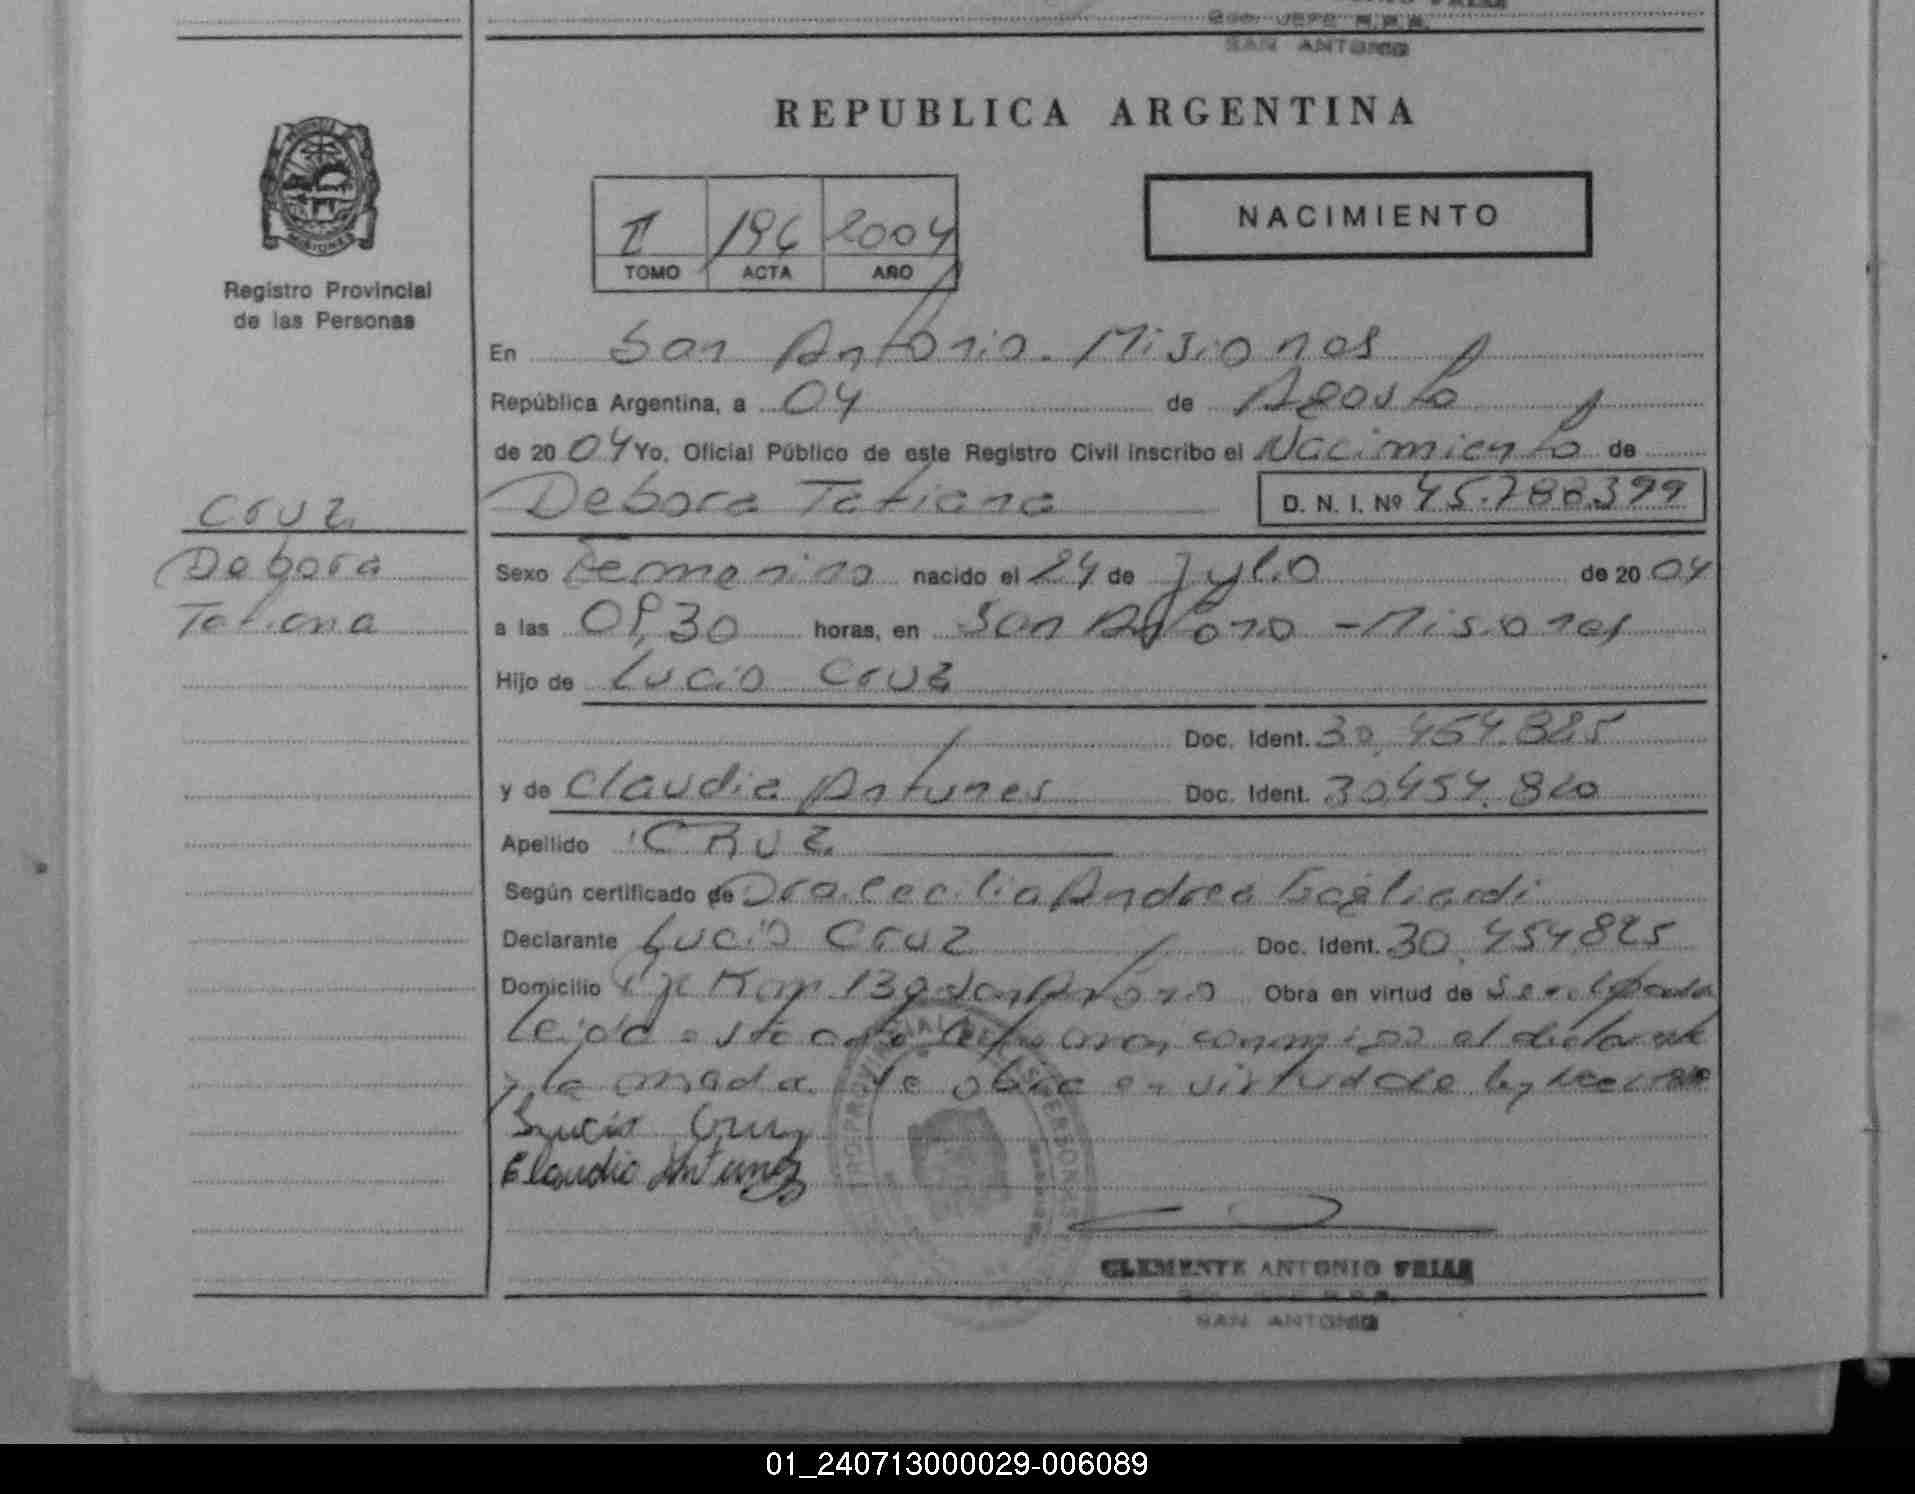 SAN ANTONIO
REPUBLICA ARGENTINA
NACIMIENTO
I 196 2004
TOMO ACTA AÑO
MISIONES
Registro Provincial
de las Personas
En San Antonio. Misiones
República Argentina, a 04 de Agosto
de 2004 Yo, Oficial Público de este Registro Civil inscribo el Nacimiento de
Debora Tatiana D. N. I. Nº 45.788.399
Cruz
Debora
Tatiana
Sexo Femenino nacido el 24 de Julio de 2004
a las 09,30 horas, en San Antonio - Misiones
Hijo de Lucio Cruz
Doc. Ident. 30.454.825
y de Claudia Antunes Doc. Ident. 30454.820
Apellido CRUZ
Según certificado de Dra. Cecilia Andrea Gagliardi
Declarante Lucio Cruz Doc. Ident. 30.454825
Domicilio Km 130 San Antonio Obra en virtud de
Leida conmigo el
y la obra en virtud de ley
Lucio Cruz
Claudia Antunez
CLEMENTE ANTONIO FRIAS
SAN ANTONIO
01_240713000029-006089